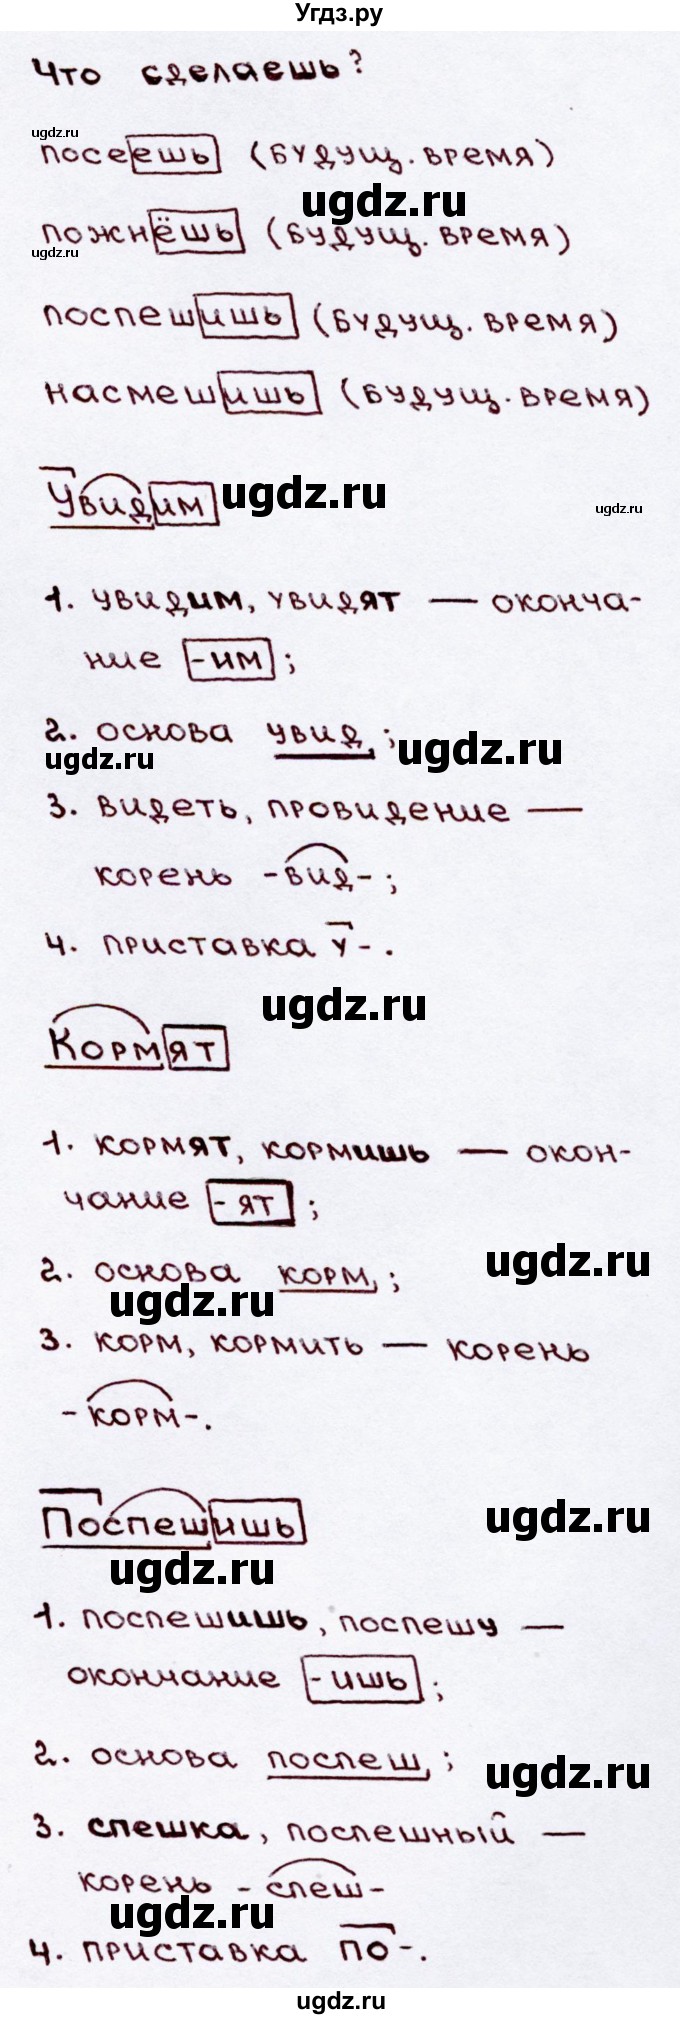 Угдз.ру
Что сделаешь?
ugdz.ru
посеешь (будущ. время)
ugdz.ru
пожнёшь (будущ. время)
ugdz.ru
поспешишь (будущ. время)
насмешишь (будущ. время)
Увидим
ugdz.ru
ugdz.ru
1. увидим, увидят — оконча-
ние -им ;
2. основа увид ;
ugdz.ru
ugdz.ru
3. видеть, провидение —
корень -вид- ;
4. приставка у- .
ugdz.ru
Кормят
1. кормят, кормишь — окон-
чание -ят ;
ugdz.ru
2. основа корм ;
ugdz.ru
3. корм, кормить — корень
-корм-.
ugdz.ru
Поспешишь
ugdz.ru
1. поспешишь, поспешу —
окончание -ишь ;
2. основа поспеш ;
ugdz.ru
3. спешка, поспешный —
корень -спеш-
ugdz.ru
4. приставка по-.
ugdz.ru